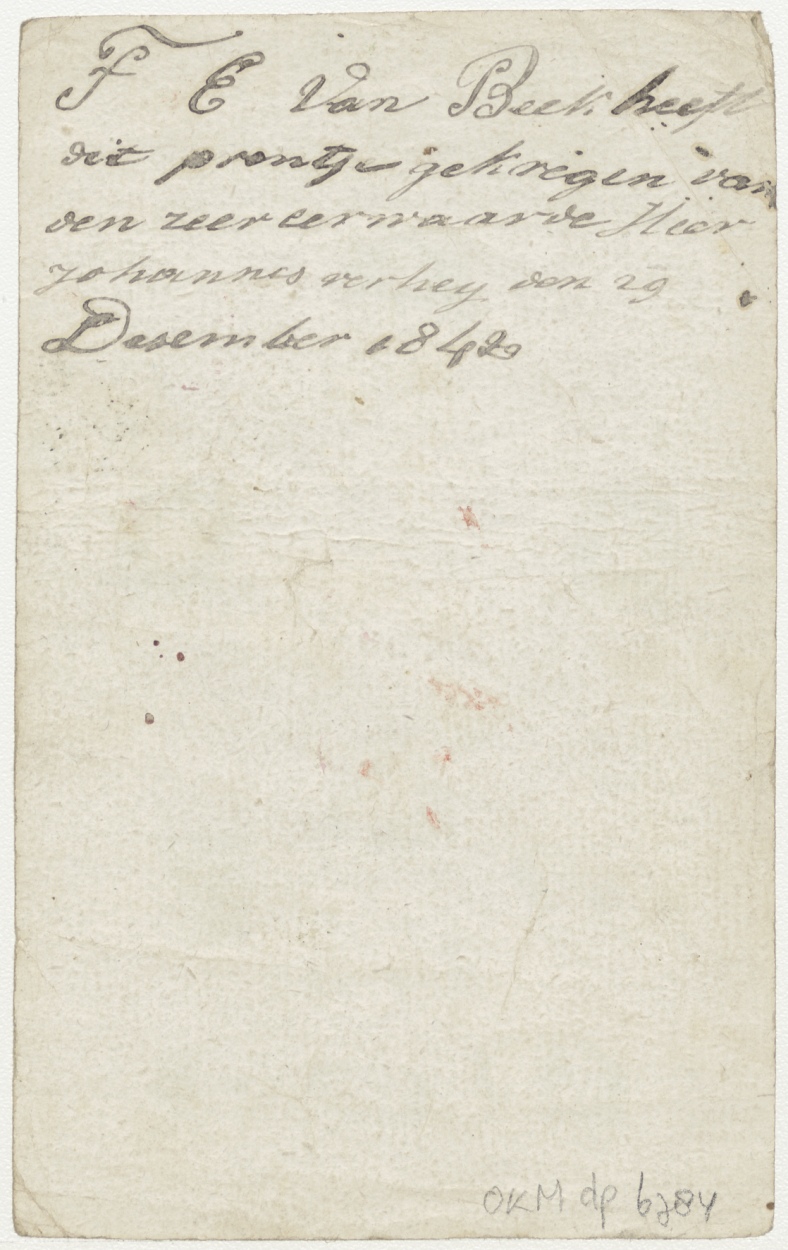 F E Van Beek heeft
dit prentje gekregen van
den zeer eerwaarde Heer
Johannes verhey den 29
Desember 1842
OKM dp 6784